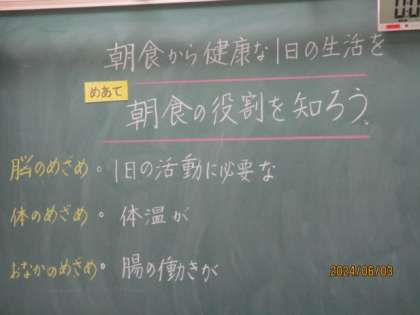 朝食から健康な1日の生活を
めあて
朝食の役割を知ろう。
脳のめざめ。1日の活動に必要な
体のめざめ。体温が
おなかのめざめ。腸の働きが
2024/06/03